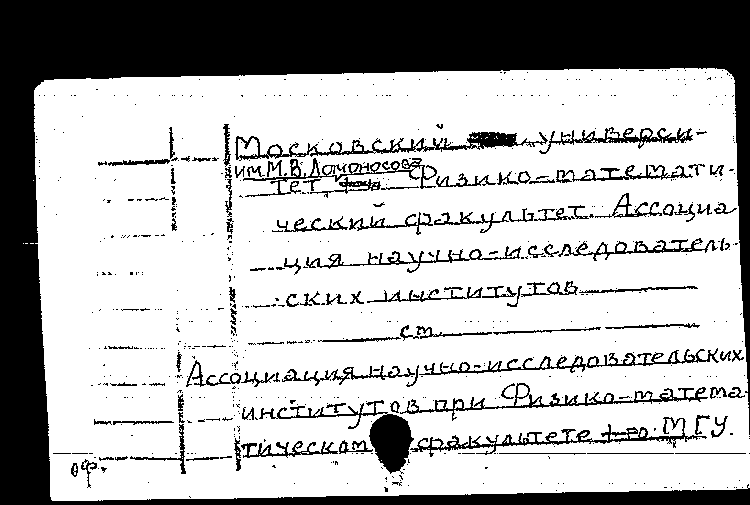 Московский универси-
им. М.В. Ломоносова
тет. Физико-математи-
ческий факультет. Ассоциа
ция научно-исследователь-
ских институтов
см.
Ассоциация научно-исследовательских
институтов при Физико-матема
тическом факультете МГУ.
оф.